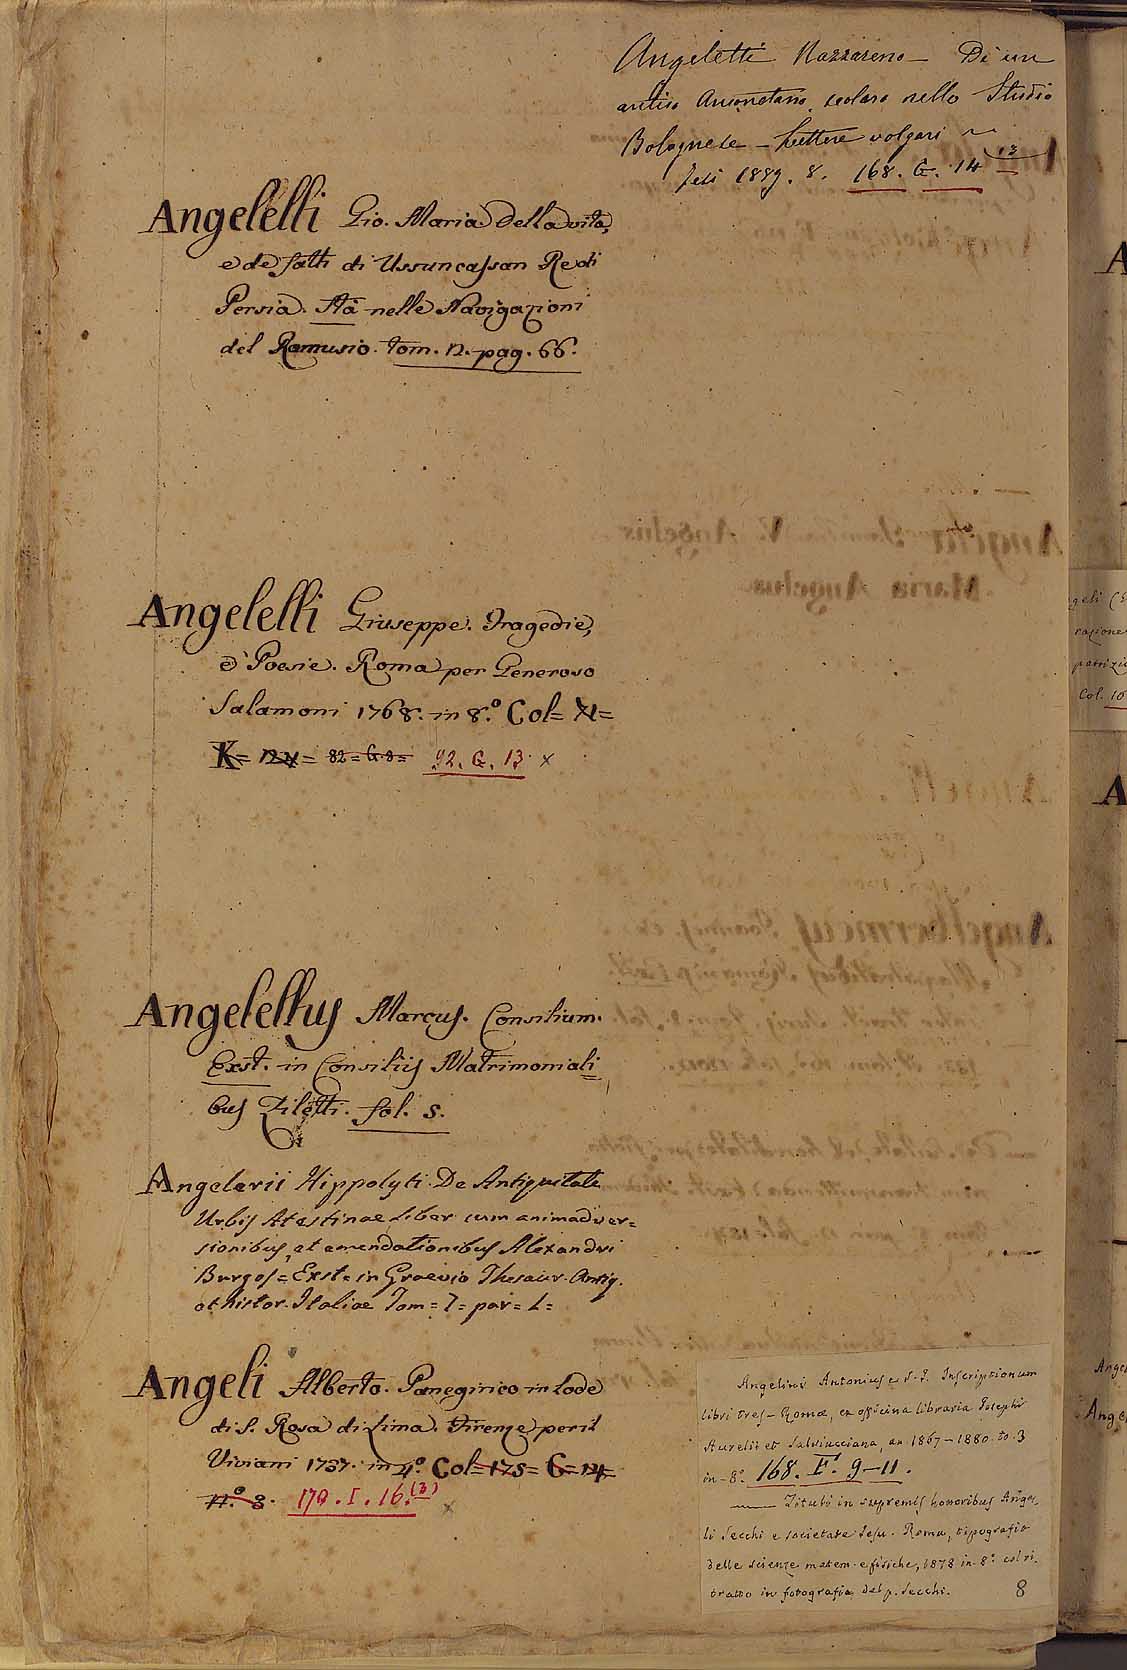 Angeletti Nazzareno — Di un
antico Anconetano, scolaro nello Studio
Bolognese — Lettere volgari ~
Jesi 1889. 8. 168. G. 14 13
Angelelli Gio. Maria Della vita,
e de fatti di Ussuncassan Re di
Persia. Stà nelle Navigazioni
del Ramusio. tom. 2. pag. 66.
Angelelli Giuseppe. Tragedie,
e Poesie. Roma per Generoso
Salamoni 1768. in 8.º Col= XI=
82= G.8= 92. G. 13 x
Angelellus Marcus. Consilium.
Exst. in Consiliis Matrimoniali=
bus Ziletti. fol. 5.
Angelerii Hippolyti De Antiquitate
Urbis Atestinae Liber cum animadver=
sionibus, et emendationibus Alexandri
Burgos= Exst= in Graevio Thesaur. Antiq.
et histor. Italiae Tom= 7= par= 1=
Angeli Alberto. Panegirico in lode
di S. Rosa di Lima. Firenze per il
Viviani 1737. in 4.º Col= 175= G= 14=
n.º 8. 170. I. 16.(3) x
Angelini Antonius e S. J. Inscriptionum
libri tres — Romæ, ex officina libraria Josephi
Aurelii et Salviucciana, an 1867—1880 to. 3
in-8.º 168. F. 9—11.
—— Tituli in supremis honoribus Ange=
li Secchi e societate Jesu. Roma, tipografia
delle scienze matem. e fisiche, 1878 in 8.º col ri=
tratto in fotografia del p. Secchi.
8
geli
razione
patrizi
Col. 16
A
A
Ange
Ange